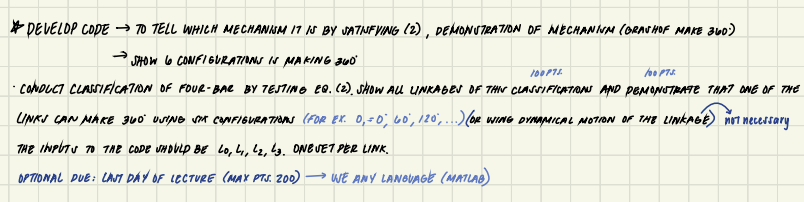 * DEVELOP CODE → TO TELL WHICH MECHANISM IT IS BY SATISFYING (2), DEMONSTRATION OF MECHANISM (GRASHOF MAKE 360°)
→ SHOW 6 CONFIGURATIONS IS MAKING 360°
100 PTS. 100 PTS.
· CONDUCT CLASSIFICATION OF FOUR-BAR BY TESTING EQ. (2). SHOW ALL LINKAGES OF THIS CLASSIFICATIONS AND DEMONSTRATE THAT ONE OF THE
LINKS CAN MAKE 360° USING SIX CONFIGURATIONS (FOR EX. θ₁=0°, 60°, 120°, ...) (OR USING DYNAMICAL MOTION OF THE LINKAGE) not necessary
THE INPUTS TO THE CODE SHOULD BE L₀, L₁, L₂, L₃. ONE SET PER LINK.
OPTIONAL DUE: LAST DAY OF LECTURE (MAX PTS. 200) → USE ANY LANGUAGE (MATLAB)